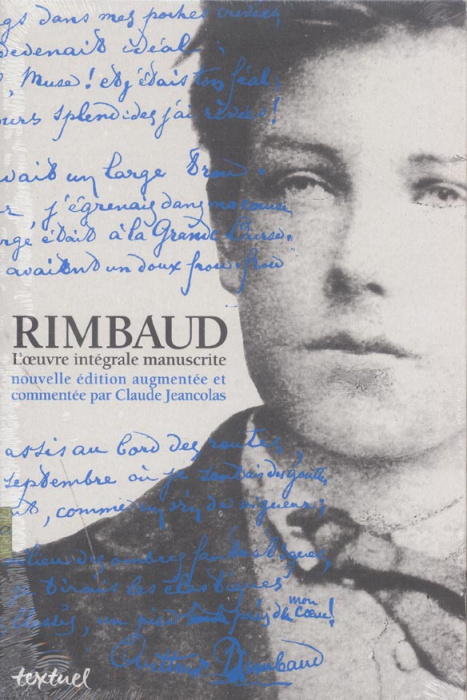 gs dans mes poches crevées
devenait idéal;
, Muse! et j'étais ton féal;
ours splendides j'ai rêvées!
vait un large trou.
r, j'égrenais dans ma course
rge était à la Grande-Ourse.
avaient un doux frou-frou
RIMBAUD
L'œuvre intégrale manuscrite
nouvelle édition augmentée et
commentée par Claude Jeancolas
assis au bord des routes,
septembre où je sentais des gouttes
nt, comme un vin de vigueur;
lieu des ombres fantastiques,
je tirais les élastiques
blessés, un pied près de mon cœur!
Arthur Rimbaud
textuel